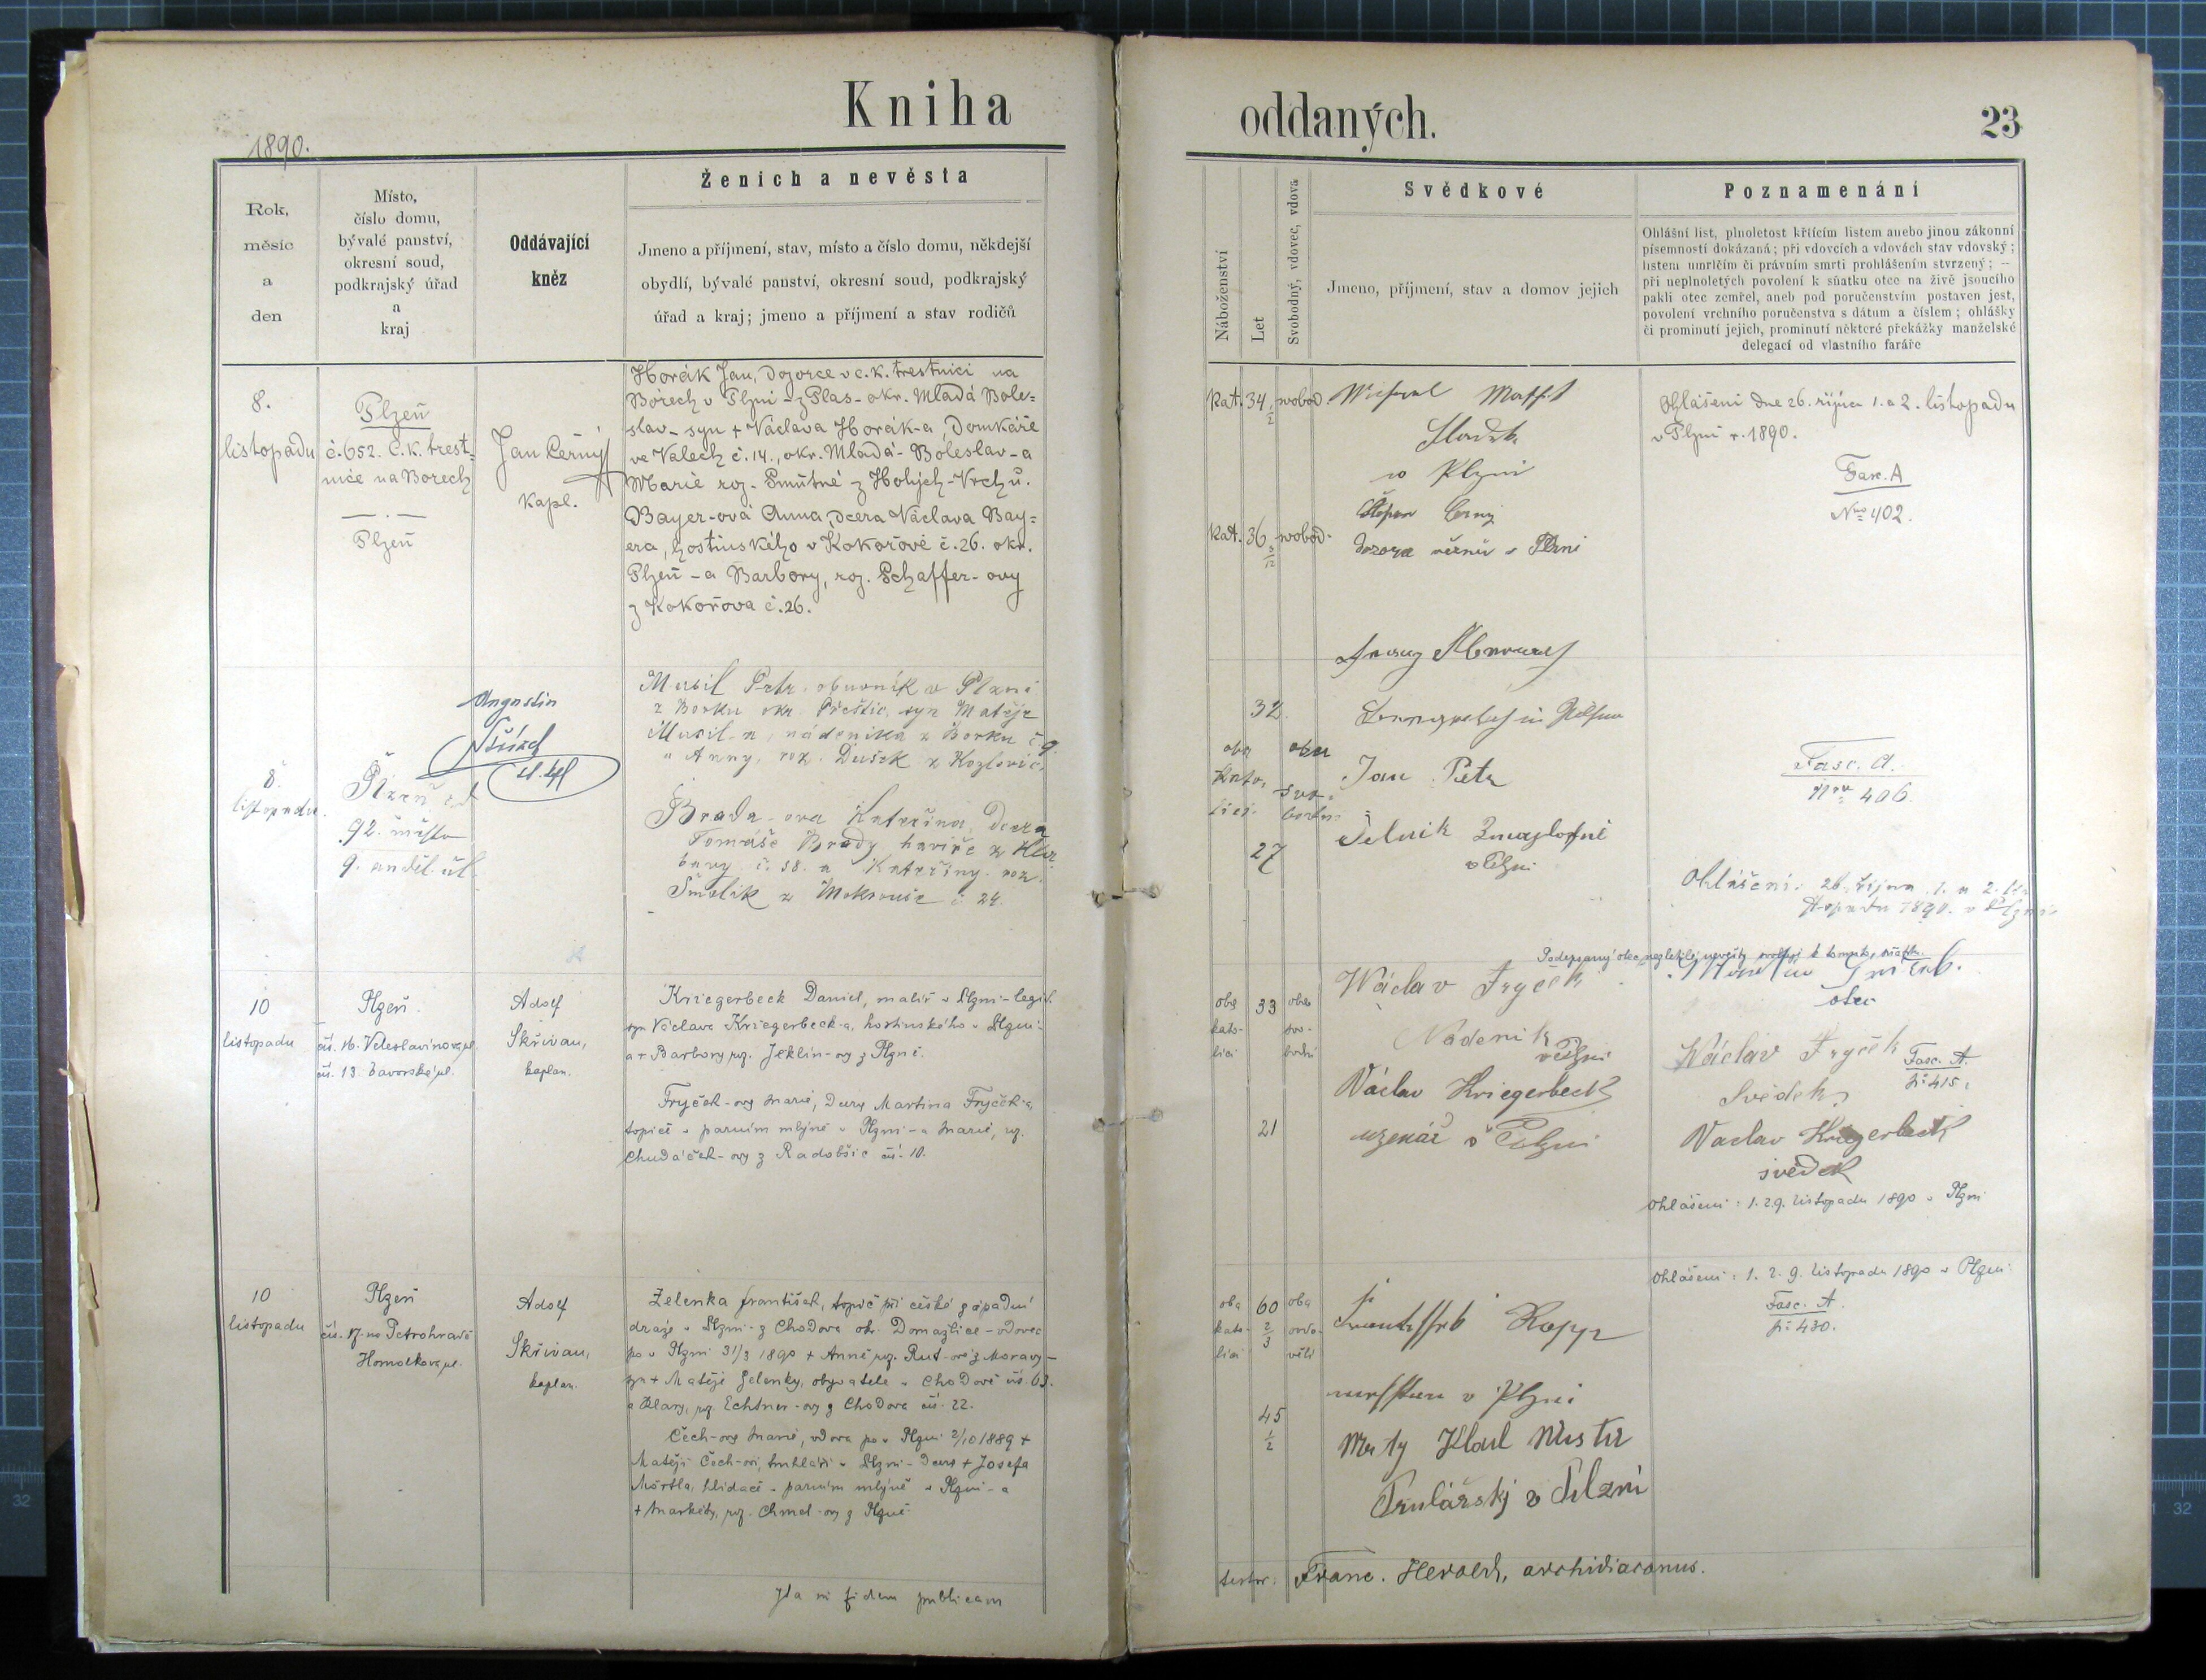 Kniha
1890.
Rok,
měsíc
a
den
Místo,
číslo domu,
bývalé panství,
okresní soud,
podkrajský úřad
a
kraj
Oddávající
kněz
Ženich a nevěsta
Jmeno a příjmení, stav, místo a číslo domu, někdejší
obydlí, bývalé panství, okresní soud, podkrajský
úřad a kraj; jmeno a příjmení a stav rodičů
8.
listopadu
Plzeň
č. 652. C. k. trest-
nice na Borech
Plzeň
Jan Černý
kapl.
Horák Jan, dozorce v c. k. trestnici na
Borech v Plzni - z Plas - okr. Mladá Bole=
slav - syn + Václava Horák-a, domkáře
ve Valech č. 14., okr. Mladá-Boleslav - a
Marie roz. Smutné z Holých-Vrchů.
Bayer-ová Anna, dcera Václava Bay=
era, hostinského v Kokořově č. 26. okr.
Plzeň - a Barbory, roz. Schaffer-ovy
z Kokořova č. 26.
8.
listopadu.
Plzeň
92. město
9. anděl. ul.
Augustin
Musil Petr, obuvník v Plzni
z Borku okr. Přeštic, syn Matěje
Musil-a, nádeníka z Borku č. 9.
a Anny, roz. Dušek z Kozlovic,
Brada-ova Kateřina, dcera
Tomáše Brady, havíře z
č. 58. a Kateřiny roz.
Smolík z Mokrouše č. 24.
10
listopadu
Plzeň.
čís. 16. Veleslavínova ul.
čís. 13. Bavorská ul.
Adolf
Skřivan,
kaplan.
Kriegerbeck Daniel, malíř v Plzni - legit.
syn Václava Kriegerbeck-a, hostinského v Plzni -
a + Barbory roz. Jeklin-ovy z Plzně.
Fryček-ovy Marie, dcery Martina Fryček-a,
topiče v parním mlýně v Plzni - a Marie, roz.
Chudáček-ovy z Radobšic čís. 10.
10
listopadu
Plzeň
čís. 17. na Petrohradě
Homolkova ul.
Adolf
Skřivan,
kaplan.
Zelenka František, topič při české západní
dráze v Plzni - z Chodova ok. Domažlice - vdovec
po v Plzni 31/3 1890 + Anně roz. Rut-ově z Moravy -
syn + Matěje Zelenky, obyvatele v Chodově čís. 63.
a Klary, roz. Echtner-ovy z Chodova čís. 22.
Čech-ovy Marie, vdova po v Plzni 2/10 1889 +
Matěji Čech-ovi, truhláři v Plzni - dcery + Josefa
Mörtla, hlídače v parním mlýně v Plzni - a
+ Markéty, roz. Chmel-ovy z Plzně.
Ita in fidem publicam
oddaných.
23
Náboženství
Let
Svobodný, vdovec, vdova
Svědkové
Jmeno, příjmení, stav a domov jejich
Poznamenání
Ohlášní list, plnoletost křticím listem anebo jinou zákonní
písemností dokázaná; při vdovcích a vdovách stav vdovský;
listem umrlčím či právním smrti prohlášením stvrzený; –
při neplnoletých povolení k sňatku otce na živě jsoucího
pakli otec zemřel, aneb pod poručenstvím postaven jest,
povolení vrchního poručenstva s dátum a číslem; ohlášky
či prominutí jejich, prominutí některé překážky manželské
delegací od vlastního faráře
kat. 34 1/2 svobod.
v Plzni
kat. 36 svobod.
Štěpan Černý
dozorce věznů v Plzni
Ohlášeni dne 26. října 1. a 2. listopadu
v Plzni r. 1890.
Fasc. A
Nro 402.
32.
oba
kato-
lici.
oba
svo-
bodni
27
Jan Petr
v Plzni
Fasc. A.
Nro 406.
Ohlášení: 26. října 1. a 2. li-
stopadu 1890. v Plzni.
Podepsaný otec nezletilé nevěsty svoluje k tomuto sňatku.
otec
oba
kato-
lici
33
oba
svo-
bodní
21
Wáclav Fryček
Nádeník
v Plzni
Václav Kriegerbeck
uzenář v Plzni
Wáclav Fryček
Svědek
Fasc. A.
№ 415.
Vaclav Kriegerbeck
svědek
Ohlášeni: 1. 2. 9. listopadu 1890 v Plzni
oba
kato-
lici
60
2/3
oba
ovdo-
vělí
45
1/2
Kopp
v Plzni
Mistr
Truhlářský v Pilzni
Ohlášeni: 1. 2. 9. listopadu 1890 v Plzni.
Fasc. A.
№ 430.
testor: Franc. Herold, archidiaconus.